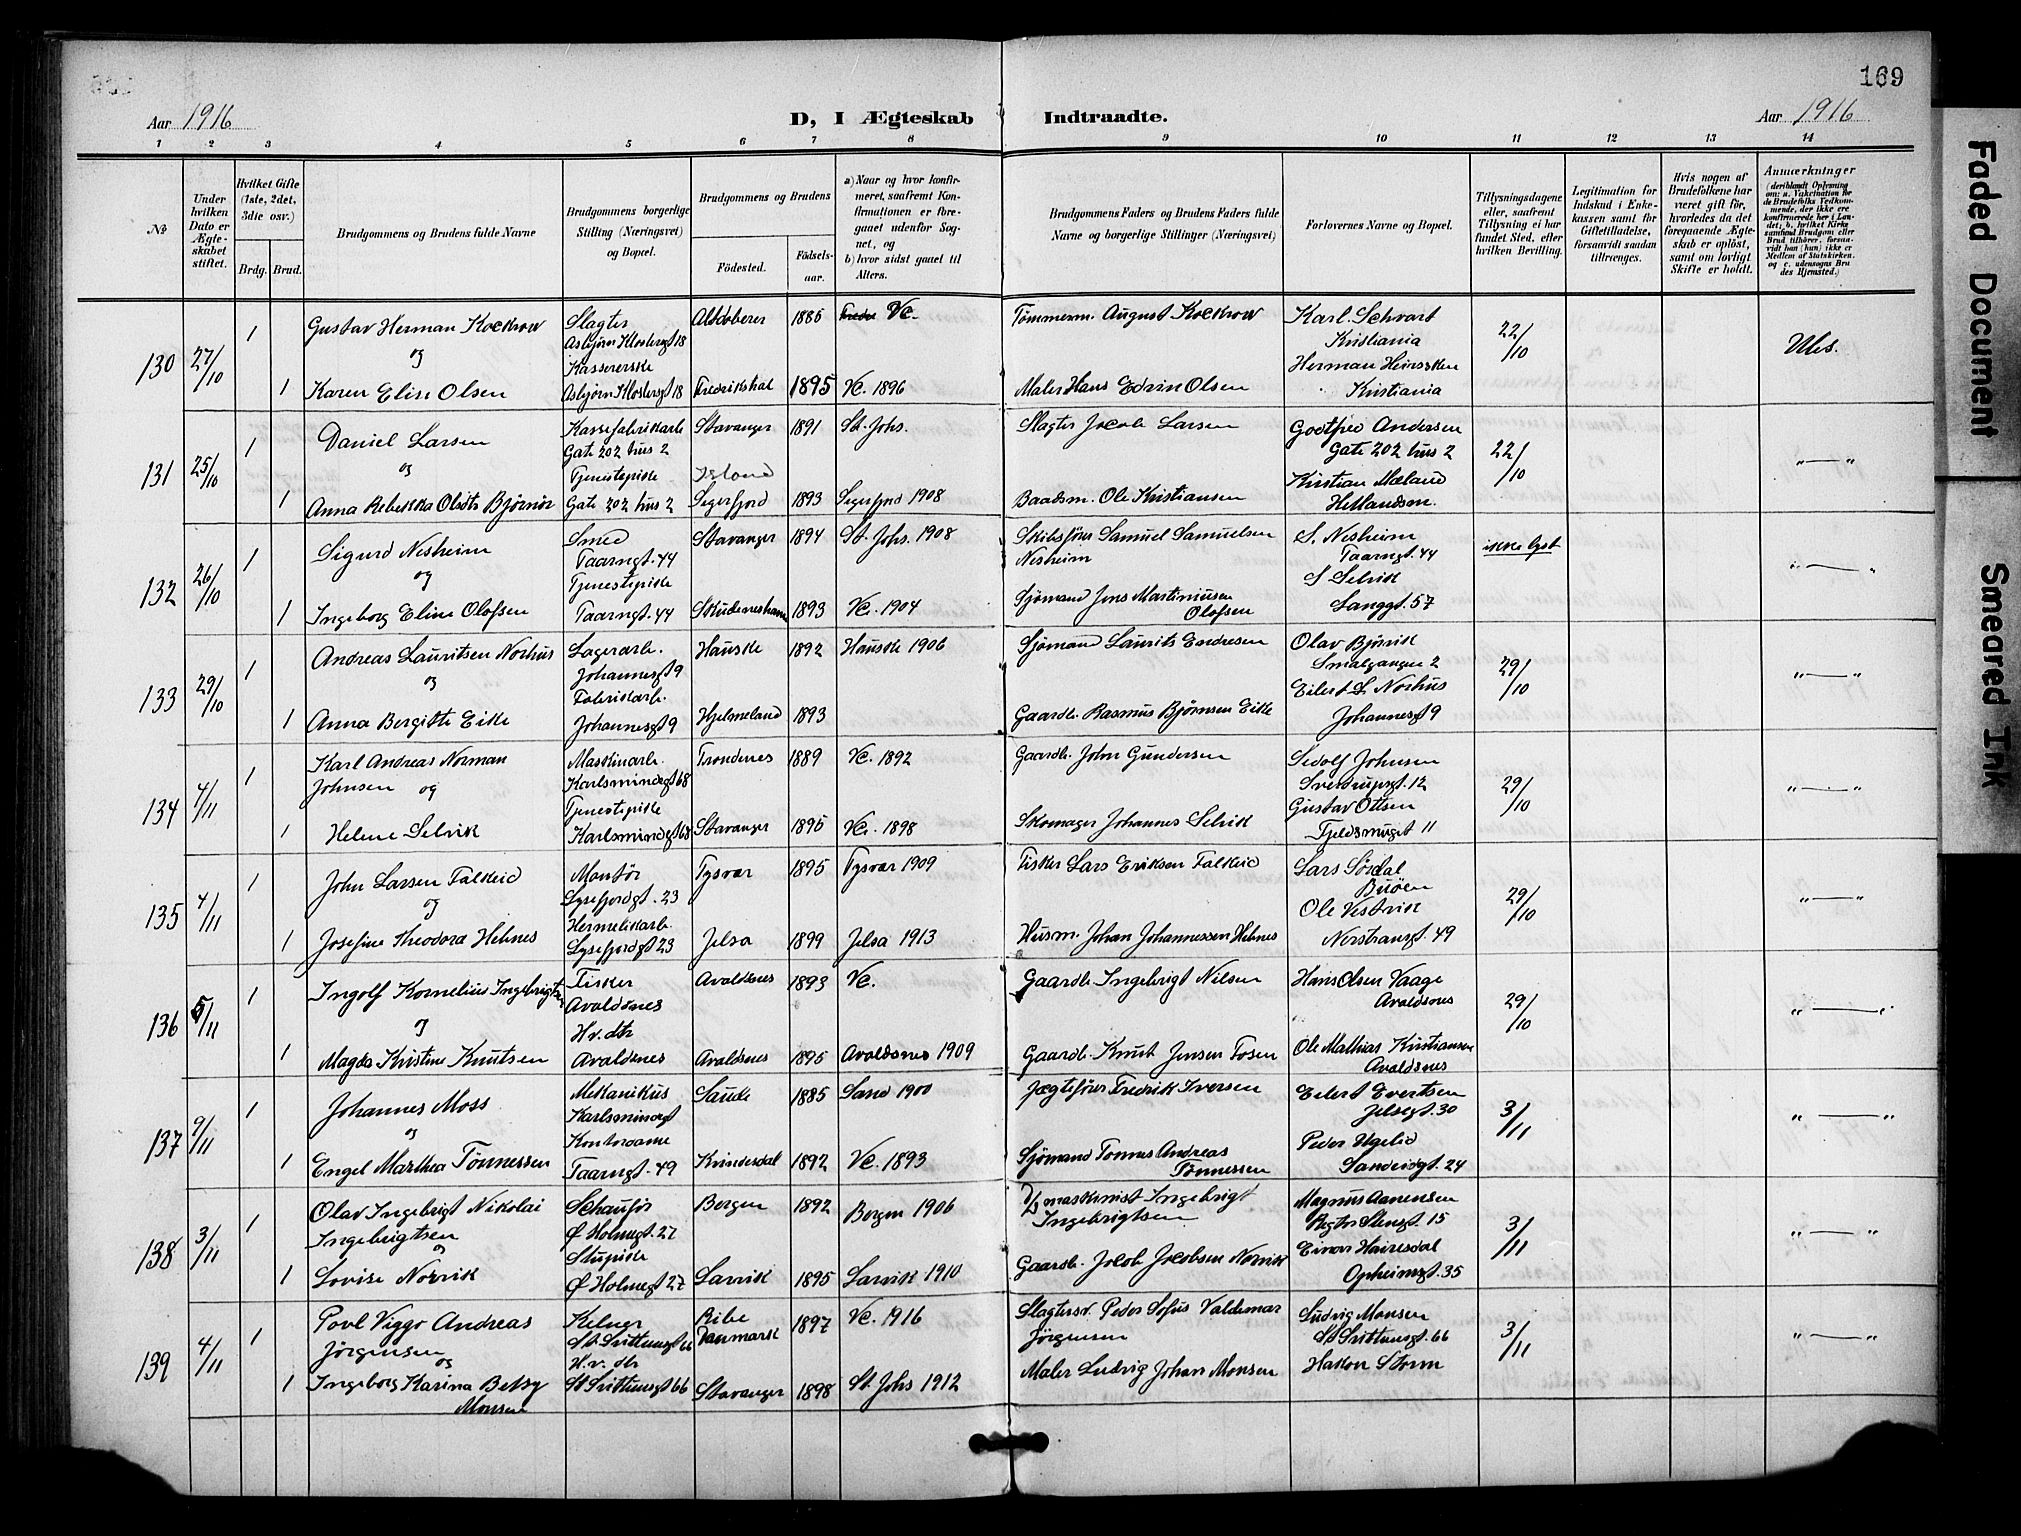 169
Aar 1916
D, I Ægteskab Indtraadte.
Aar 1916
1 2 3 4 5 6 7 8 9 10 11 12 13 14
No
Under hvilken Dato er Ægteskabet stiftet.
Hvilket Gifte (1ste, 2det, 3die osv.)
Brdg. Brud.
Brudgommens og Brudens fulde Navne
Brudgommens borgerlige Stilling (Næringsvei) og Bopæl.
Brudgommens og Brudens
Fødested.
Fødselsaar.
a) Naar og hvor konfirmeret, saafremt Konfirmationen er foregaaet udenfor Sognet, og
b) hvor sidst gaaet til Alters.
Brudgommens Faders og Brudens Faders fulde Navne og borgerlige Stillinger (Næringsvei)
Forlovernes Navne og Bopæl.
Tillysningsdagene eller, saafremt Tillysning ei har fundet Sted, efter hvilken Bevilling.
Legitimation for Indskud i Enkekassen samt for Giftetilladelse, forsaavidt saadan tiltrænges.
Hvis nogen af Brudefolkene har været gift før, hvorledes da det foregaaende Ægteskab er opløst, samt om lovligt Skifte er holdt.
Anmærkninger
(deriblandt Oplysning om: a. Vakcination for de Brudefolks Vedkommende, der ikke ere konfirmerede her i Landet; b. hvilket Kirkesamfund Brudgom eller Brud tilhører, forsaavidt han (hun) ikke er Medlem af Statskirken. og c. udensogns Brudes Hjemsted.)
130 27/10 1 Gustav Herman Kockrow Slagter Altdoberer 1886 Vc. Tømmerm. August Kockrow Karl Schvart 22/10 Ules.
og Asbjørn Klostergt 18 Kristiania
Kassererske Herman Heinssken
1 Karen Elise Olsen Asbjørn Klostergt 18 Fredrikshal 1895 Vc. 1896 Maler Hans Edvin Olsen Kristiania
131 25/10 1 Daniel Larsen Kassefabrikarb Stavanger 1891 St. Johs. Slagter Jacob Larsen Godtfred Andersen 22/10 " — "
og Gate 202 hus 2 Gate 202 hus 2
Tjenestepike Island Kristian Mæland
1 Anna Rebekka Olsdtr Bjørnør Gate 202 hus 2 Segerfjord 1893 Segerfjord 1908 Baadsm. Ole Kristiansen Hetlandsm.
132 26/10 1 Sigurd Nesheim Smed Stavanger 1894 St. Johs. 1908 Skibsfører Samuel Samuelsen S. Nesheim ikke lyst " — "
og Taarngt. 44 Nesheim Taarngt. 44
Tjenestepike Sjømand Jens Martiniusen S Selvik
1 Ingeborg Eline Olofsen Taarngt. 44 Skudeneshavn 1893 Vc. 1904 Olofsen Langgt. 57
133 29/10 1 Andreas Lauritsen Norhus Lagerarb. Hauske 1892 Hauske 1906 Sjømand Laurits Endresen Olav Bjørvik 29/10 " — "
og Johannesgt 9 Smalgangen 2
Fabrikarb. Eilert L Norhus
1 Anna Bergitte Eike Johannesgt 9 Hjelmeland 1893 Gaardb. Rasmus Bjørnsen Eike Johannesgt 9
134 4/11 1 Karl Andreas Norman Maskinarb. Trondenes 1889 Vc. 1892 Gaardb. John Gundersen Sedolf Johnsen 29/10 " — "
Johnsen og Karlsmindegt 68 Sverdrupsgt. 12
Tjenestepike Gustav Ottsen
1 Helene Selvik Karlsmindegt 68 Stavanger 1895 Vc. 1898 Skomager Johannes Selvik Fjeldsmuget 11
135 4/11 1 John Larsen Falkeid Montør Tysvær 1895 Tysvær 1909 Fisker Lars Eriksen Falkeid Lars Sørdal 29/10 " — "
og Lysefjordgt. 23 Buøen
Hermetikarb. Ole Vestvik
1 Josefine Theodora Hebnes Lysefjordgt 23 Jelsa 1899 Jelsa 1913 Husm. Johan Johannessen Hebnes Nerstransgt. 49
136 5/11 1 Ingolf Kornelius Ingebrigtsen Fisker Avaldsnes 1893 Vc. Gaardb. Ingebrigt Nilsen Hans Olsen Vaage 29/10 " — "
og Avaldsnes Avaldsnes
Hv. dtr
1 Magda Kristine Knutsen Avaldsnes Avaldsnes 1895 Avaldsnes 1909 Gaardb. Knut Jensen Fosen Ole Mathias Kristiansen
Avaldsnes
137 9/11 1 Johannes Moss Mekanikus Saude 1885 Sand 1900 Jægtefører Fredrik Iversen Eilert Evertsen 3/11 " — "
og Karlsmindegt Jelsegt. 30
Kontordame Sjømand Tønnes Andreas Peder Ugelid
1 Engel Marthea Tønnessen Taarngt. 49 Kvindesdal 1892 Vc. 1893 Tønnessen Sandeidgt. 24
138 3/11 1 Olav Ingebrigt Nikolai Schauför Bergen 1892 Bergen 1906 D/s maskinist Ingebrigt Magnus Aanensen 3/11 " — "
Ingebrigtsen Ø Holmegt. 27 Ingebrigtsen Stengt. 15
og Stupike Einar Hairesdal
1 Lovise Norvik Ø Holmegt 27 Larvik 1895 Larvik 1910 Gaardb. Jacob Jacobsen Norvik Opheimsgt. 35
139 4/11 1 Povl Viggo Andreas Kelner Ribe 1897 Vc. 1916 Slagtersv. Peder Sofus Valdemar Ludvig Monsen 3/11 " — "
Jørgensen Danmark Jørgensen
og H.v. dtr
1 Ingeborg Karina Betsy Stavanger 1898 St. Johs 1912 Maler Ludvig Johan Monsen Hakon Storm
Monsen
Faded Document
Smeared Ink